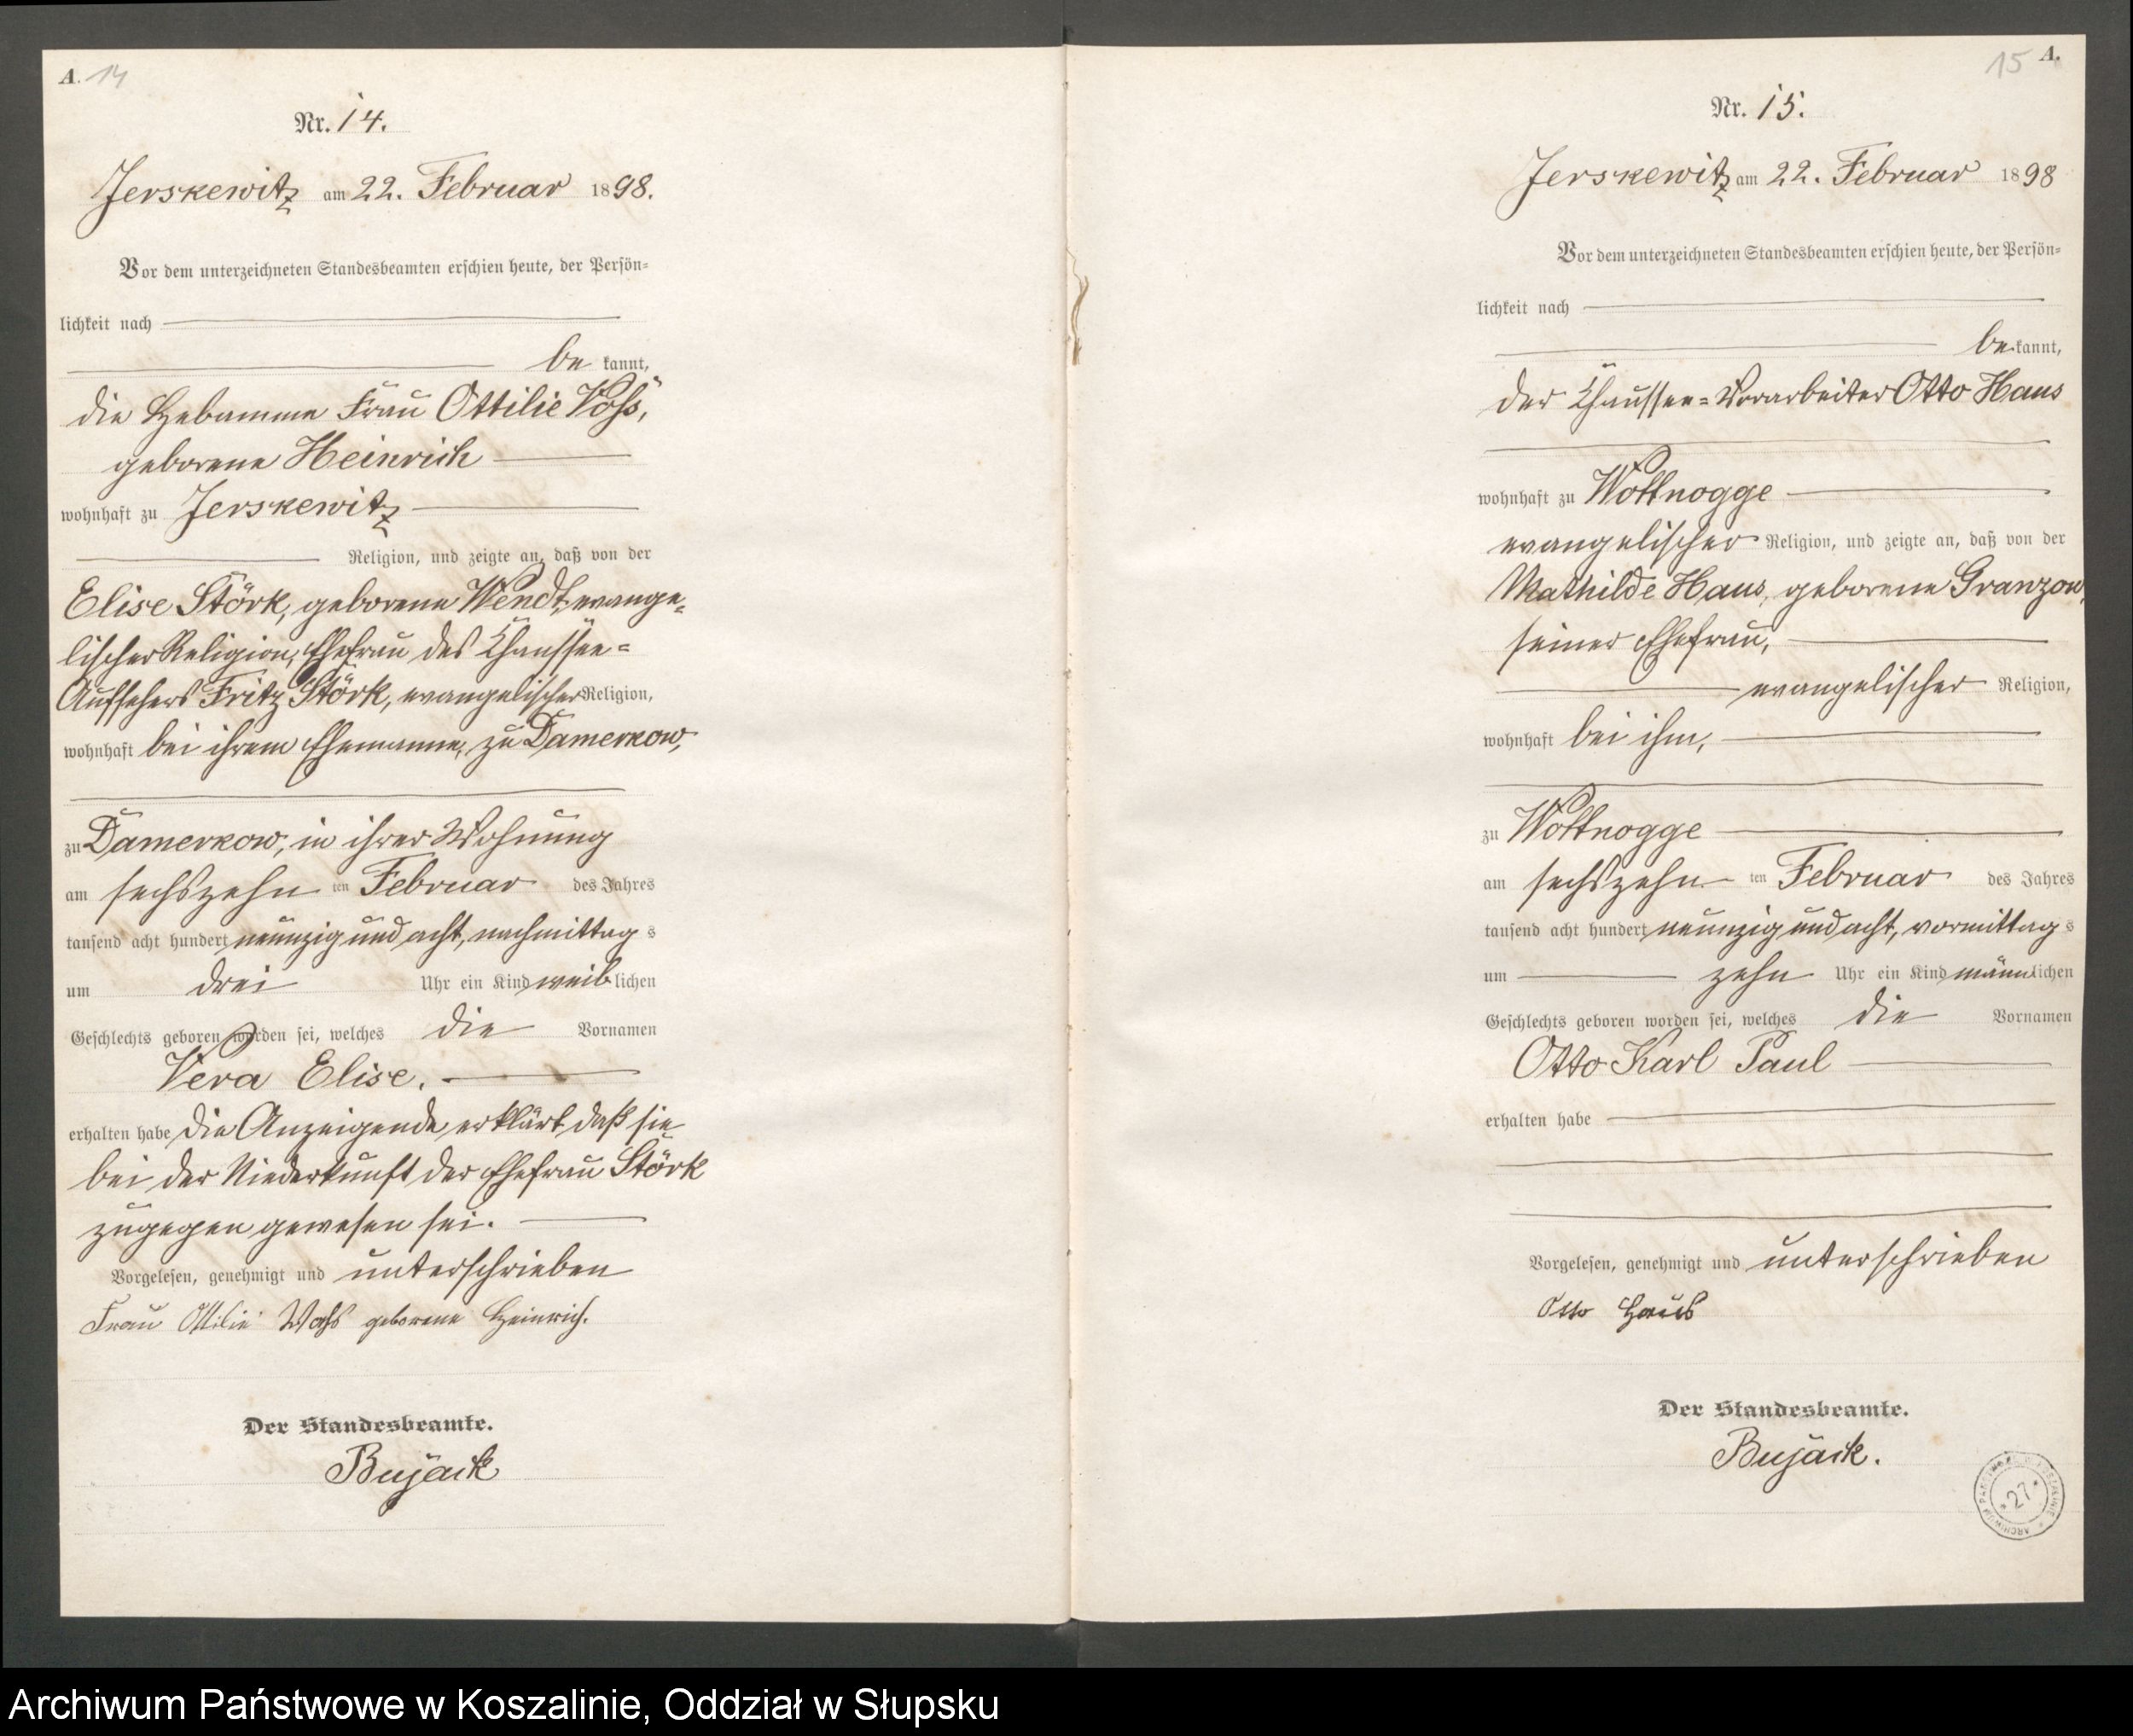 A. 14
Nr. 14.
Jerskewitz am 22. Februar 1898.
Vor dem unterzeichneten Standesbeamten erschien heute, der Persön=
lichkeit nach
be kannt,
die Hebamme Frau Ottilie Voß,
geborene Heinrich
wohnhaft zu Jerskewitz
Religion, und zeigte an, daß von der
Elise Störk, geborene Wendt, evange=
lischer Religion, Ehefrau des Chaussee=
Aufsehers Fritz Störk, evangelischer Religion,
wohnhaft bei ihrem Ehemanne, zu Damerkow,
zu Damerkow, in ihrer Wohnung
am sechszehn ten Februar des Jahres
tausend acht hundert neunzig und acht, nachmittag s
um drei Uhr ein Kind weib lichen
Geschlechts geboren worden sei, welches die Vornamen
Vera Elise.
erhalten habe die Anzeigende erklärt, daß sie
bei der Niederkunft der Ehefrau Störk
zugegen gewesen sei.
Vorgelesen, genehmigt und unterschrieben
Frau Ottilie Wohs geborene Heinrich.
Der Standesbeamte.
Bujack
15 A.
Nr. 15.
Jerskewitz am 22. Februar 1898
Vor dem unterzeichneten Standesbeamten erschien heute, der Persön=
lichkeit nach
be kannt,
der Chaussee=Vorarbeiter Otto Haus
wohnhaft zu Wottnogge
evangelischer Religion, und zeigte an, daß von der
Mathilde Haus, geborene Granzow,
seiner Ehefrau,
evangelischer Religion,
wohnhaft bei ihm,
zu Wottnogge
am sechszehn ten Februar des Jahres
tausend acht hundert neunzig und acht, vormittag s
um zehn Uhr ein Kind männlichen
Geschlechts geboren worden sei, welches die Vornamen
Otto Karl Paul
erhalten habe
Vorgelesen, genehmigt und unterschrieben
Otto Haus
Der Standesbeamte.
Bujack.
* 27 *
Archiwum Państwowe w Koszalinie, Oddział w Słupsku